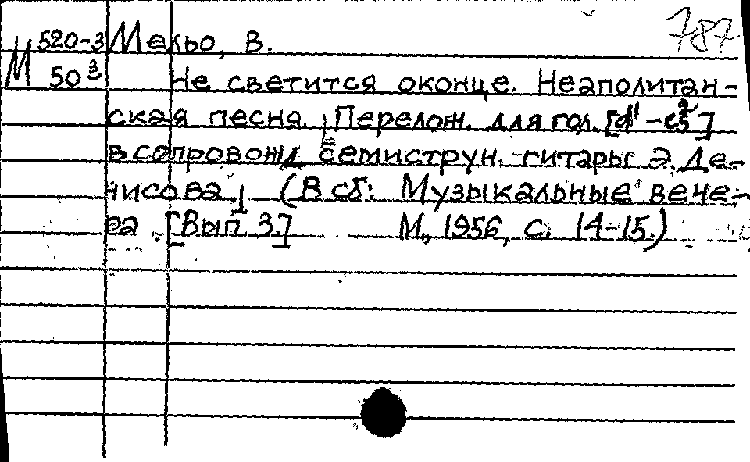 787
М 520-3 Мельо, В.
50³ Не светится оконце. Неаполитан-
ская песня. Перелож. для гол. [d¹-
в сопровожд. семиструн. гитары Э. Де-
нисова. (В сб.: Музыкальные вече-
ра. [Вып. 3.] М., 1956, с. 14-15.)